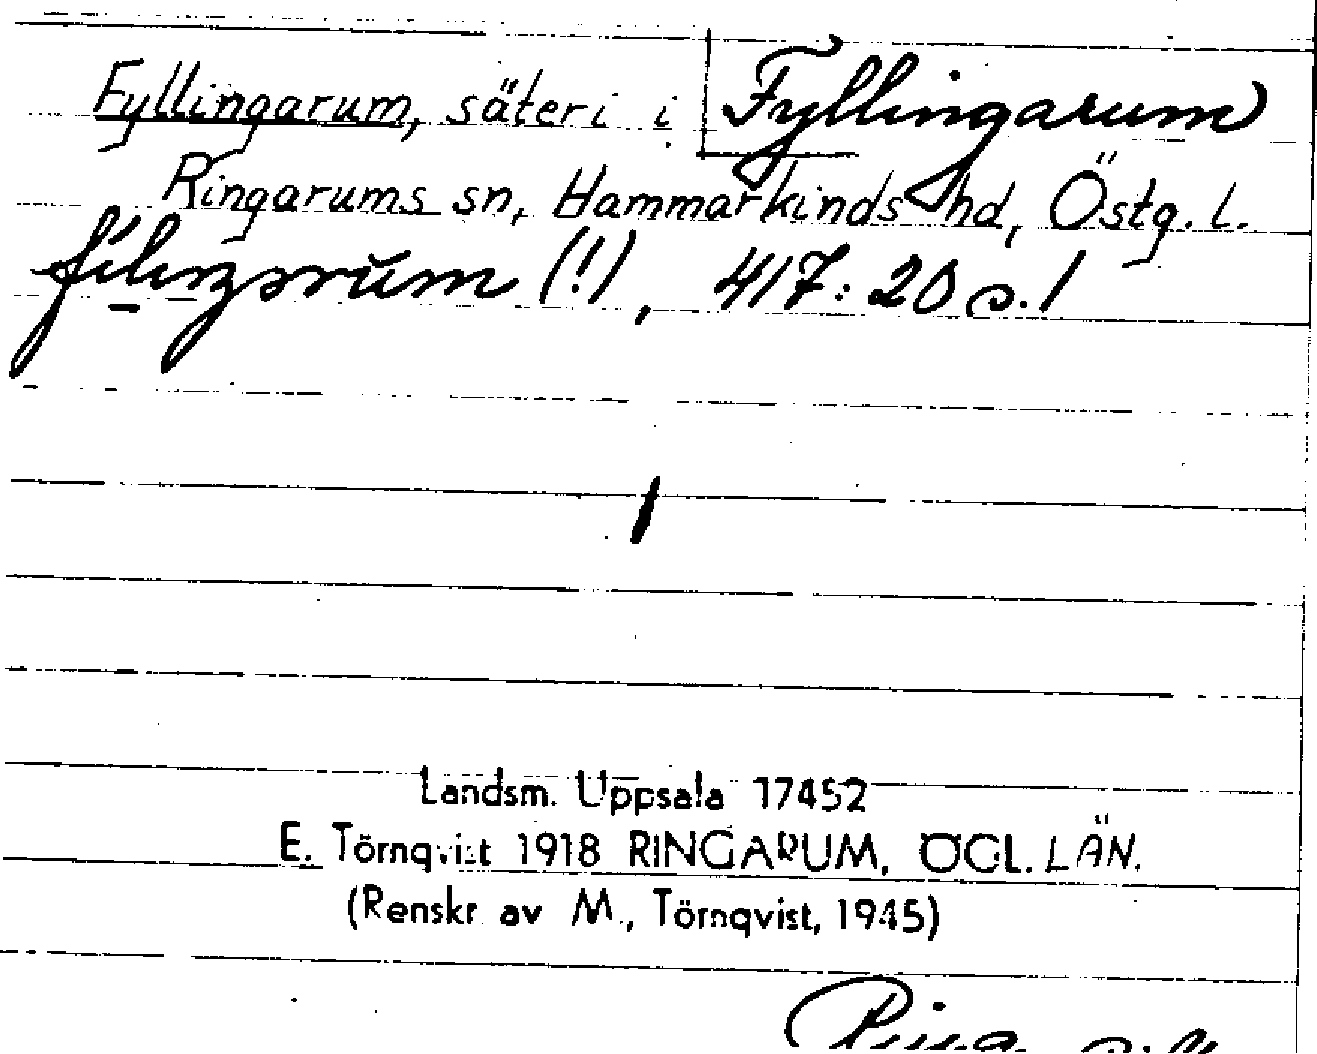 Fyllingarum, säteri i Fyllingarum
Ringarums sn, Hammarkinds hd, Östg. l.
(!), 417: 20 s. 1
Landsm. Uppsala 17452
E. Törnqvist 1918 RINGARUM, ÖGL. LÄN.
(Renskr av M., Törnqvist, 1945)